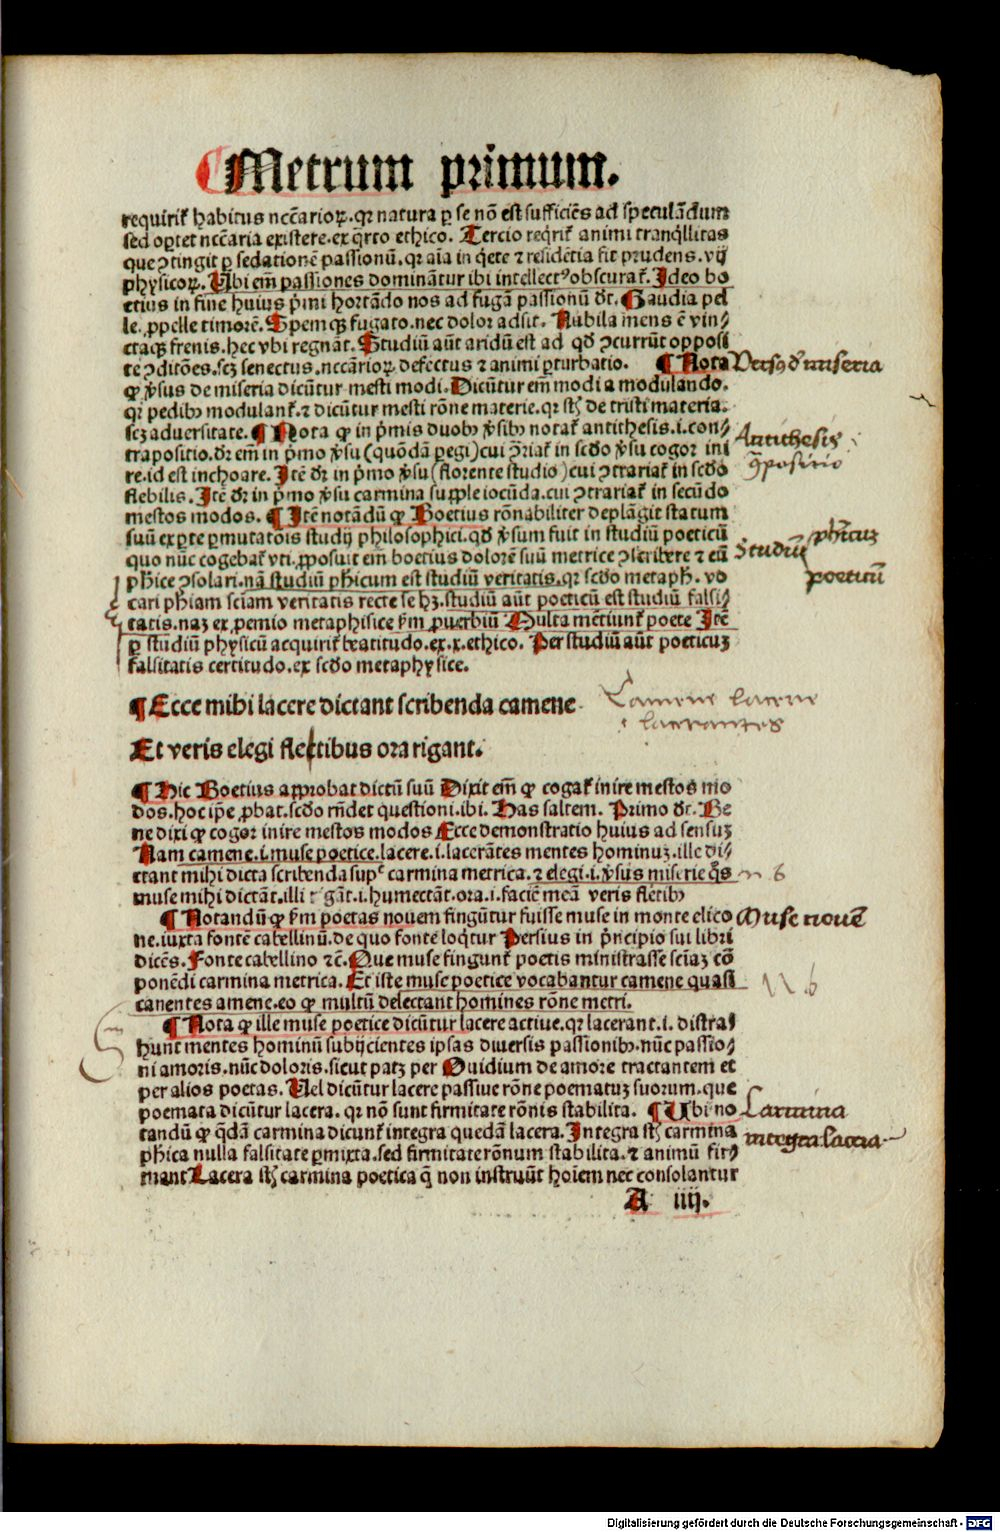 Metrum primum.
requirit᷑ habitus ncc̄arioꝝ. qꝛ natura ꝑ se nō est sufficiēs ad speculādum
sed oꝑtet ncc̄aria existere. ex q̄rto ethico. Tercio reqͥrit᷑ animi tranqͥllitas
que ꝯtingit ꝑ sedationē passionū. qꝛ aīa in qͥete ⁊ residētia fit prudens. vij
physicoꝝ. Ubi em̄ passiones dominātur ibi intellectꝰ obscurat᷑. Ideo bo
etius in fine huius pͥmi hortādo nos ad fugā passionū dt̄. Gaudia pel
le. ꝓpelle timorē. Spemqꝫ fugato. nec dolor adsit. Nubila mens ē vin⸗
ctaqꝫ frenis. hec vbi regnāt. Studiū aūt aridū est ad qd̄ ꝯcurrūt opposi
te ꝯditōes. scꝫ senectus. nccārioꝝ defectus ⁊ animi ꝑturbatio. ¶ Nota
ꝙ v̓sus de miseria dicūtur mesti modi. Dicūtur em̄ modi a modulando.
qꝛ pedibꝫ modulant᷑. ⁊ dicūtur mesti rōne materie. qꝛ st̄ de tristi materia.
scꝫ aduersitate. ¶ Nota ꝙ in pͥmis duobꝫ v̓sibꝫ notat᷑ antithesis. i. con⸗
trapositio. dr̄ em̄ in pͥmo v̓su (quōdā ꝑegi) cui ꝯ̄riat᷑ in scd̄o v̓su cogor ini
re. id est inchoare. Itē dr̄ in pͥmo v̓su (florente studio) cui ꝯtrariat᷑ in scd̄o
flebilis. Itē dr̄ in pͥmo v̓su carmina supple iocūda. cui ꝯtrariat᷑ in secūdo
mestos modos. ¶ Itē notādū ꝙ Boetius rōnabiliter deplāgit statum
suū ex ꝑte ꝑmutatōis studij philosophici. qd̄ v̓sum fuit in studiū poeticū
quo nūc cogebat᷑ vti. ꝓposuit em̄ boetius dolorē suū metrice ꝯscribere ⁊ eū
ph̄ice ꝯsolari. nā studiū ph̄icum est studiū veritatis. qꝛ scd̄o metaph̄. vo
cari ph̄iam sciam veritatis recte se hꝫ. studiū aūt poeticū est studiū falsi⸗
tatis. naꝫ ex ꝓemio metaphisice sm̄ ꝓuerbiū Multa mētiunt᷑ poete Itē
ꝑ studiū physicū acquirit᷑ beatitudo. ex. x. ethico. Per studiū aūt poeticuꝫ
falsitatis certitudo. ex scd̄o metaphysice.
¶ Ecce mihi lacere dictant scribenda camene
Et veris elegi fletibus ora rigant.
¶ Hic Boetius approbat dictū suū Dixit em̄ ꝙ cogat᷑ inire mestos mo
dos. hoc ip̄e ꝓbat. scd̄o rn̄det questioni. ibi. Has saltem. Primo dt̄. Be
ne dixi ꝙ cogor inire mestos modos Ecce demonstratio huius ad sensuꝫ
Nam camene. i. muse poetice. lacere. i. lacerātes mentes hominuꝫ. ille di⸗
ctant mihi dicta scribenda supͤ carmina metrica. ⁊ elegi. i. v̓sus miserie qͦs
muse mihi dictāt. illi rigāt. i. humectāt. ora. i. faciē meā veris fletibꝫ
¶ Notandū ꝙ sm̄ poetas nouem fingūtur fuisse muse in monte elico
ne. iuxta fontē cabellinū. de quo fonte loqͥtur Persius in pͥncipio sui libri
dicēs. Fonte cabellino ⁊c̄. Que muse fingunt᷑ poetis ministrasse sciaꝫ cō
ponēdi carmina metrica. Et iste muse poetice vocabantur camene quasi
canentes amene. eo ꝙ multū delectant homines rōne metri.
¶ Nota ꝙ ille muse poetice dicūtur lacere actiue. qꝛ lacerant. i. distra⸗
hunt mentes hominū subijcientes ipsas diuersis passionibꝫ. nūc passio⸗
ni amoris. nūc doloris. sicut patꝫ per Ouidium de amore tractantem et
per alios poetas. Uel dicūtur lacere passiue rōne poematuꝫ suorum. que
poemata dicūtur lacera. qꝛ nō sunt firmitate rōnis stabilita. ¶ Ubi no
tandū ꝙ qͣdā carmina dicunt᷑ integra quedā lacera. Integra st̄ carmina
ph̄ica nulla falsitate ꝑmixta. sed firmitate rōnum stabilita. ⁊ animū fir⸗
mant Lacera st̄ carmina poetica q̄ non instruūt hoīem nec consolantur
A iiij.
Versꝰ d̄ miseria
Antithesis
ꝯ̄positio
Studiū
ph̄icuꝫ
poeticū
Camene lacere
i lacerantes
n b
Muse nouē
N b
Carmina
integra lacera
Digitalisierung gefördert durch die Deutsche Forschungsgemeinschaft - DFG